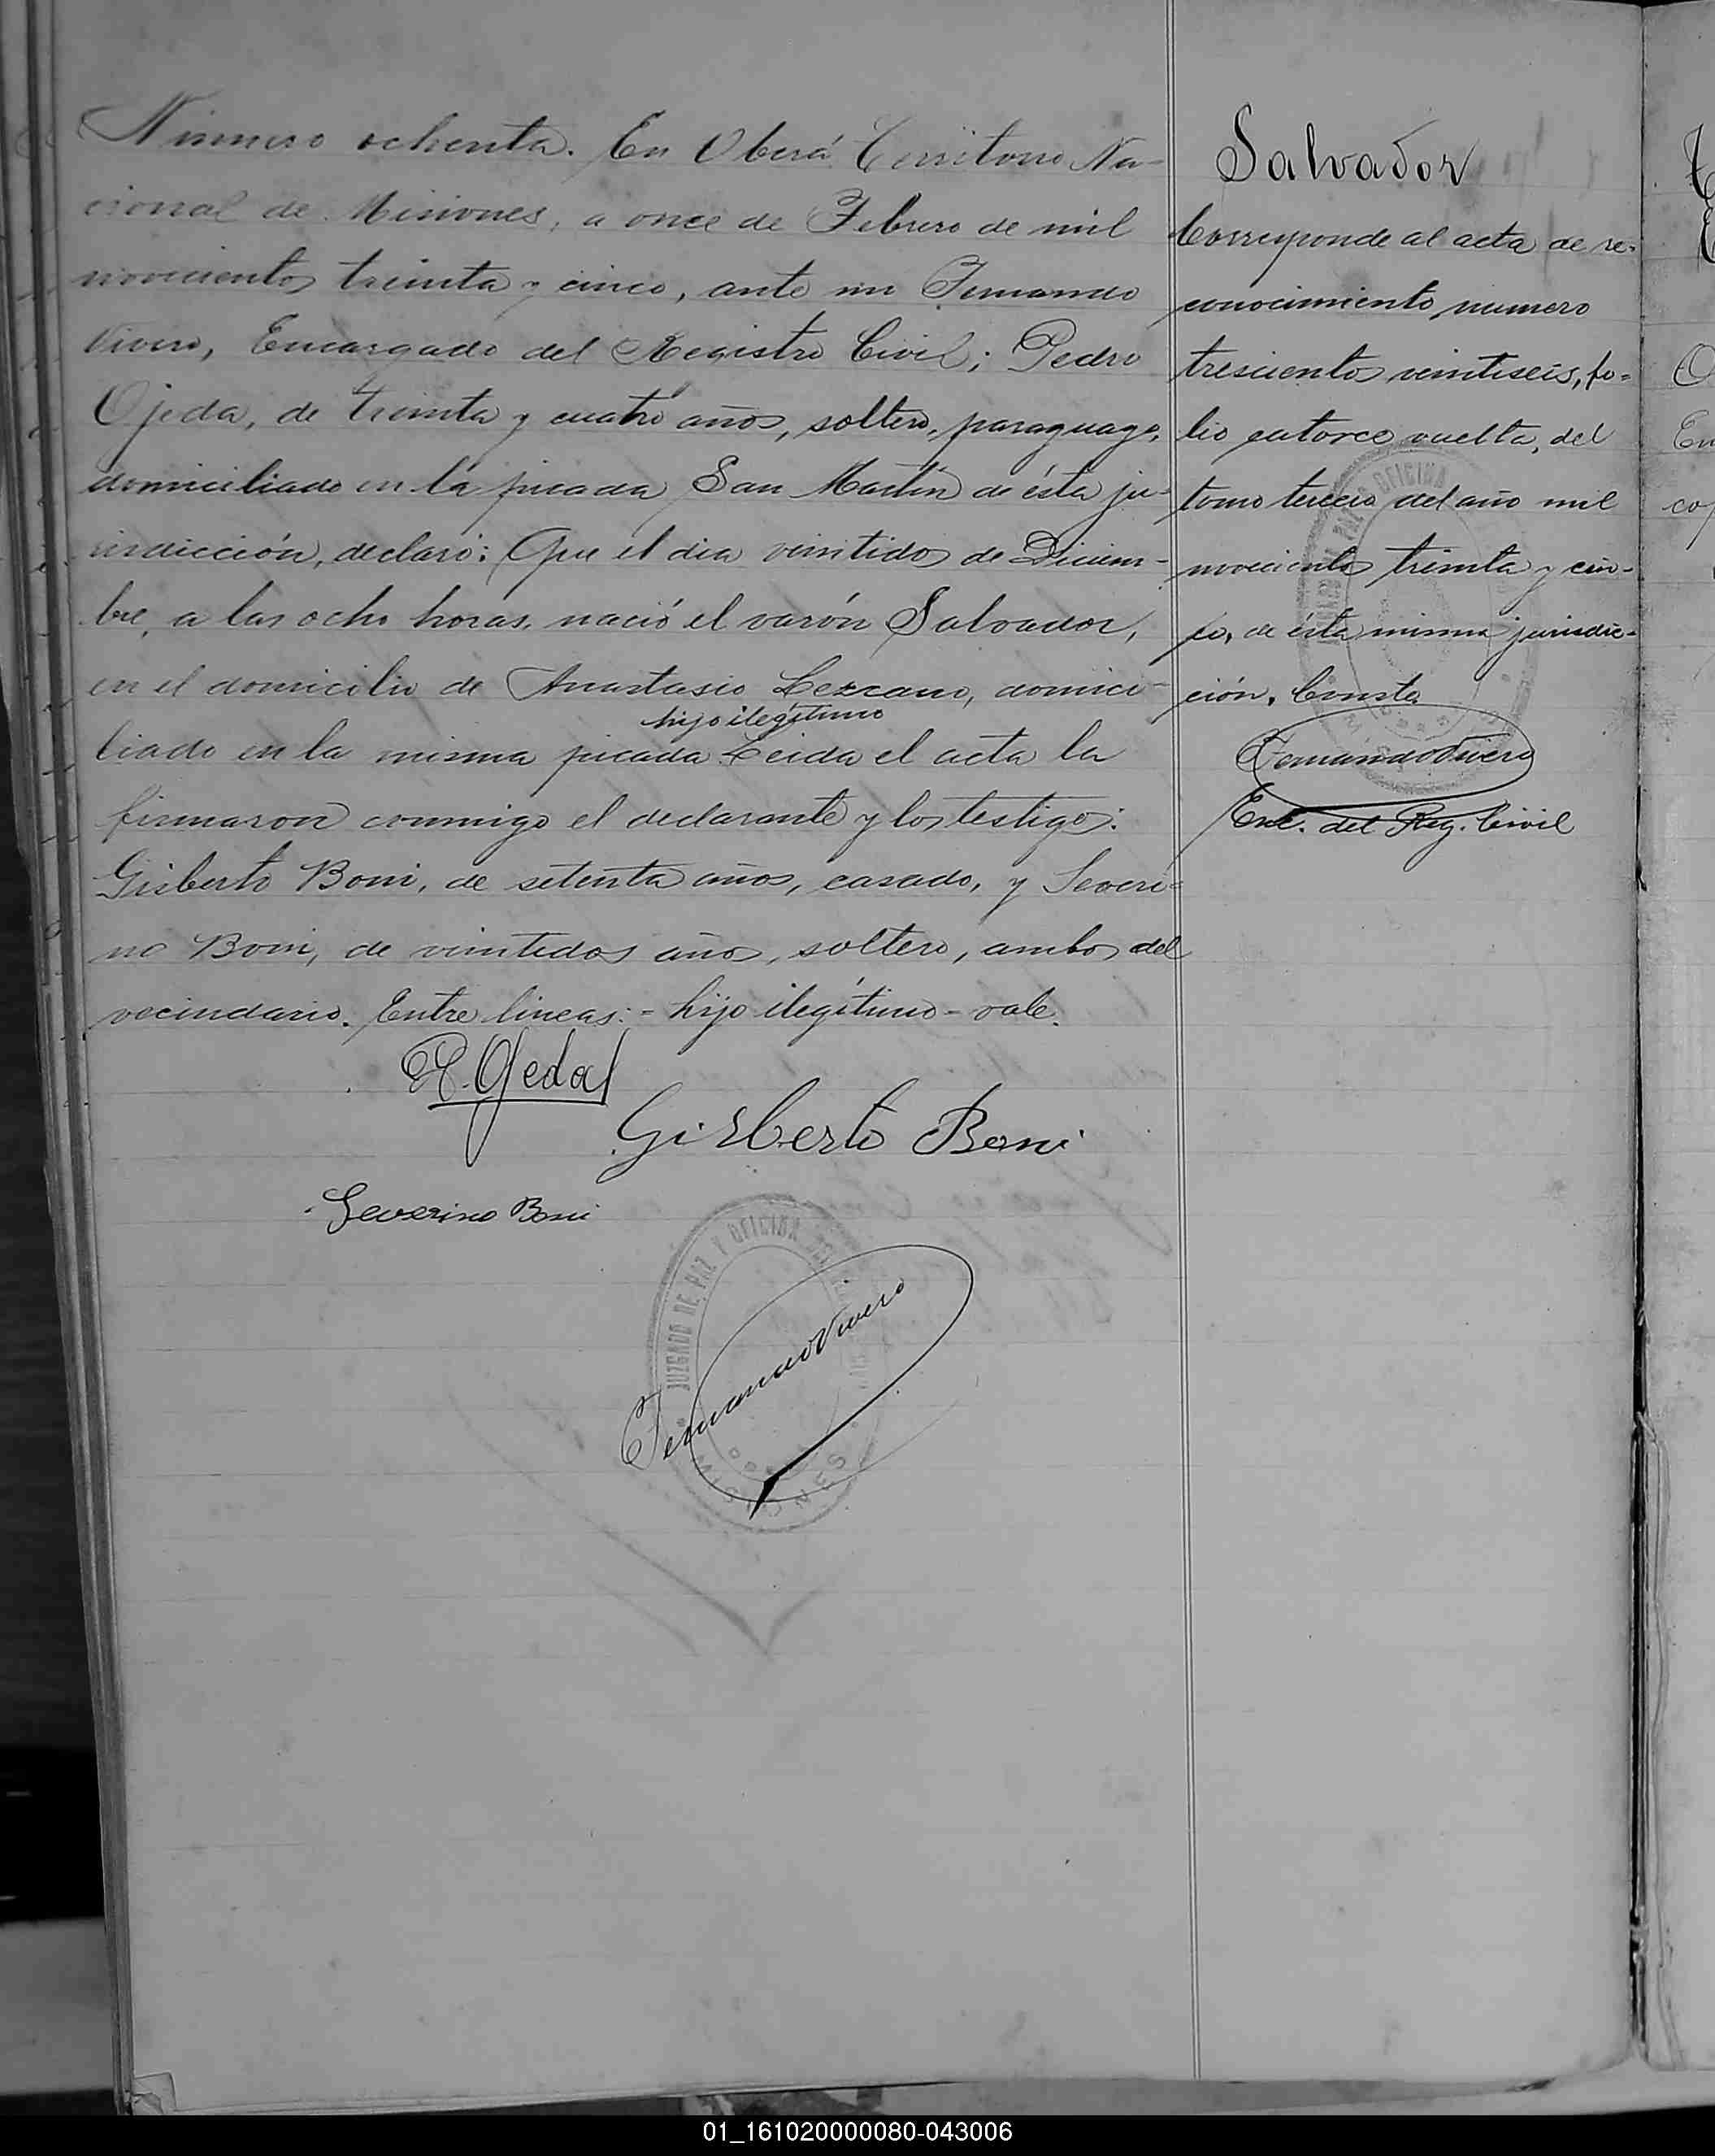 Número ochenta. En Oberá Territorio Na-
cional de Misiones, a once de Febrero de mil
novecientos treinta y cinco, ante mi Fernando
Vivero, Encargado del Registro Civil; Pedro
Ojeda, de treinta y cuatro años, soltero, paraguayo,
domiciliado en la picada San Martín de ésta ju-
risdicción, declaró: Que el dia veintidos de Diciem-
bre, a las ocho horas, nació el varón Salvador,
en el domicilio de Anastasio Lezcano, domici-
hijo ilegítimo
liado en la misma picada. Leida el acta la
firmaron conmigo el declarante y los testigos:
Gisberto Boni, de setenta años, casado, y Severi-
no Boni, de veintidos años, soltero, ambos del
vecindario. Entre lineas:- hijo ilegítimo - vale.
P. Ojeda
Gisberto Boni
Severino Boni
JUZGADO DE PAZ Y OFICINA DEL
MISIONES
Fernando Vivero
Salvador
Corresponde al acta de re-
conocimiento numero
trescientos veintiseis, fo-
lio catorce vuelta, del
tomo tercero del año mil
novecientos treinta y cin-
co, de ésta misma jurisdic-
ción. Conste.
OFICINA
Fernando Vivero
Enc. del Reg. Civil
E
O
En
cop
01_161020000080-043006